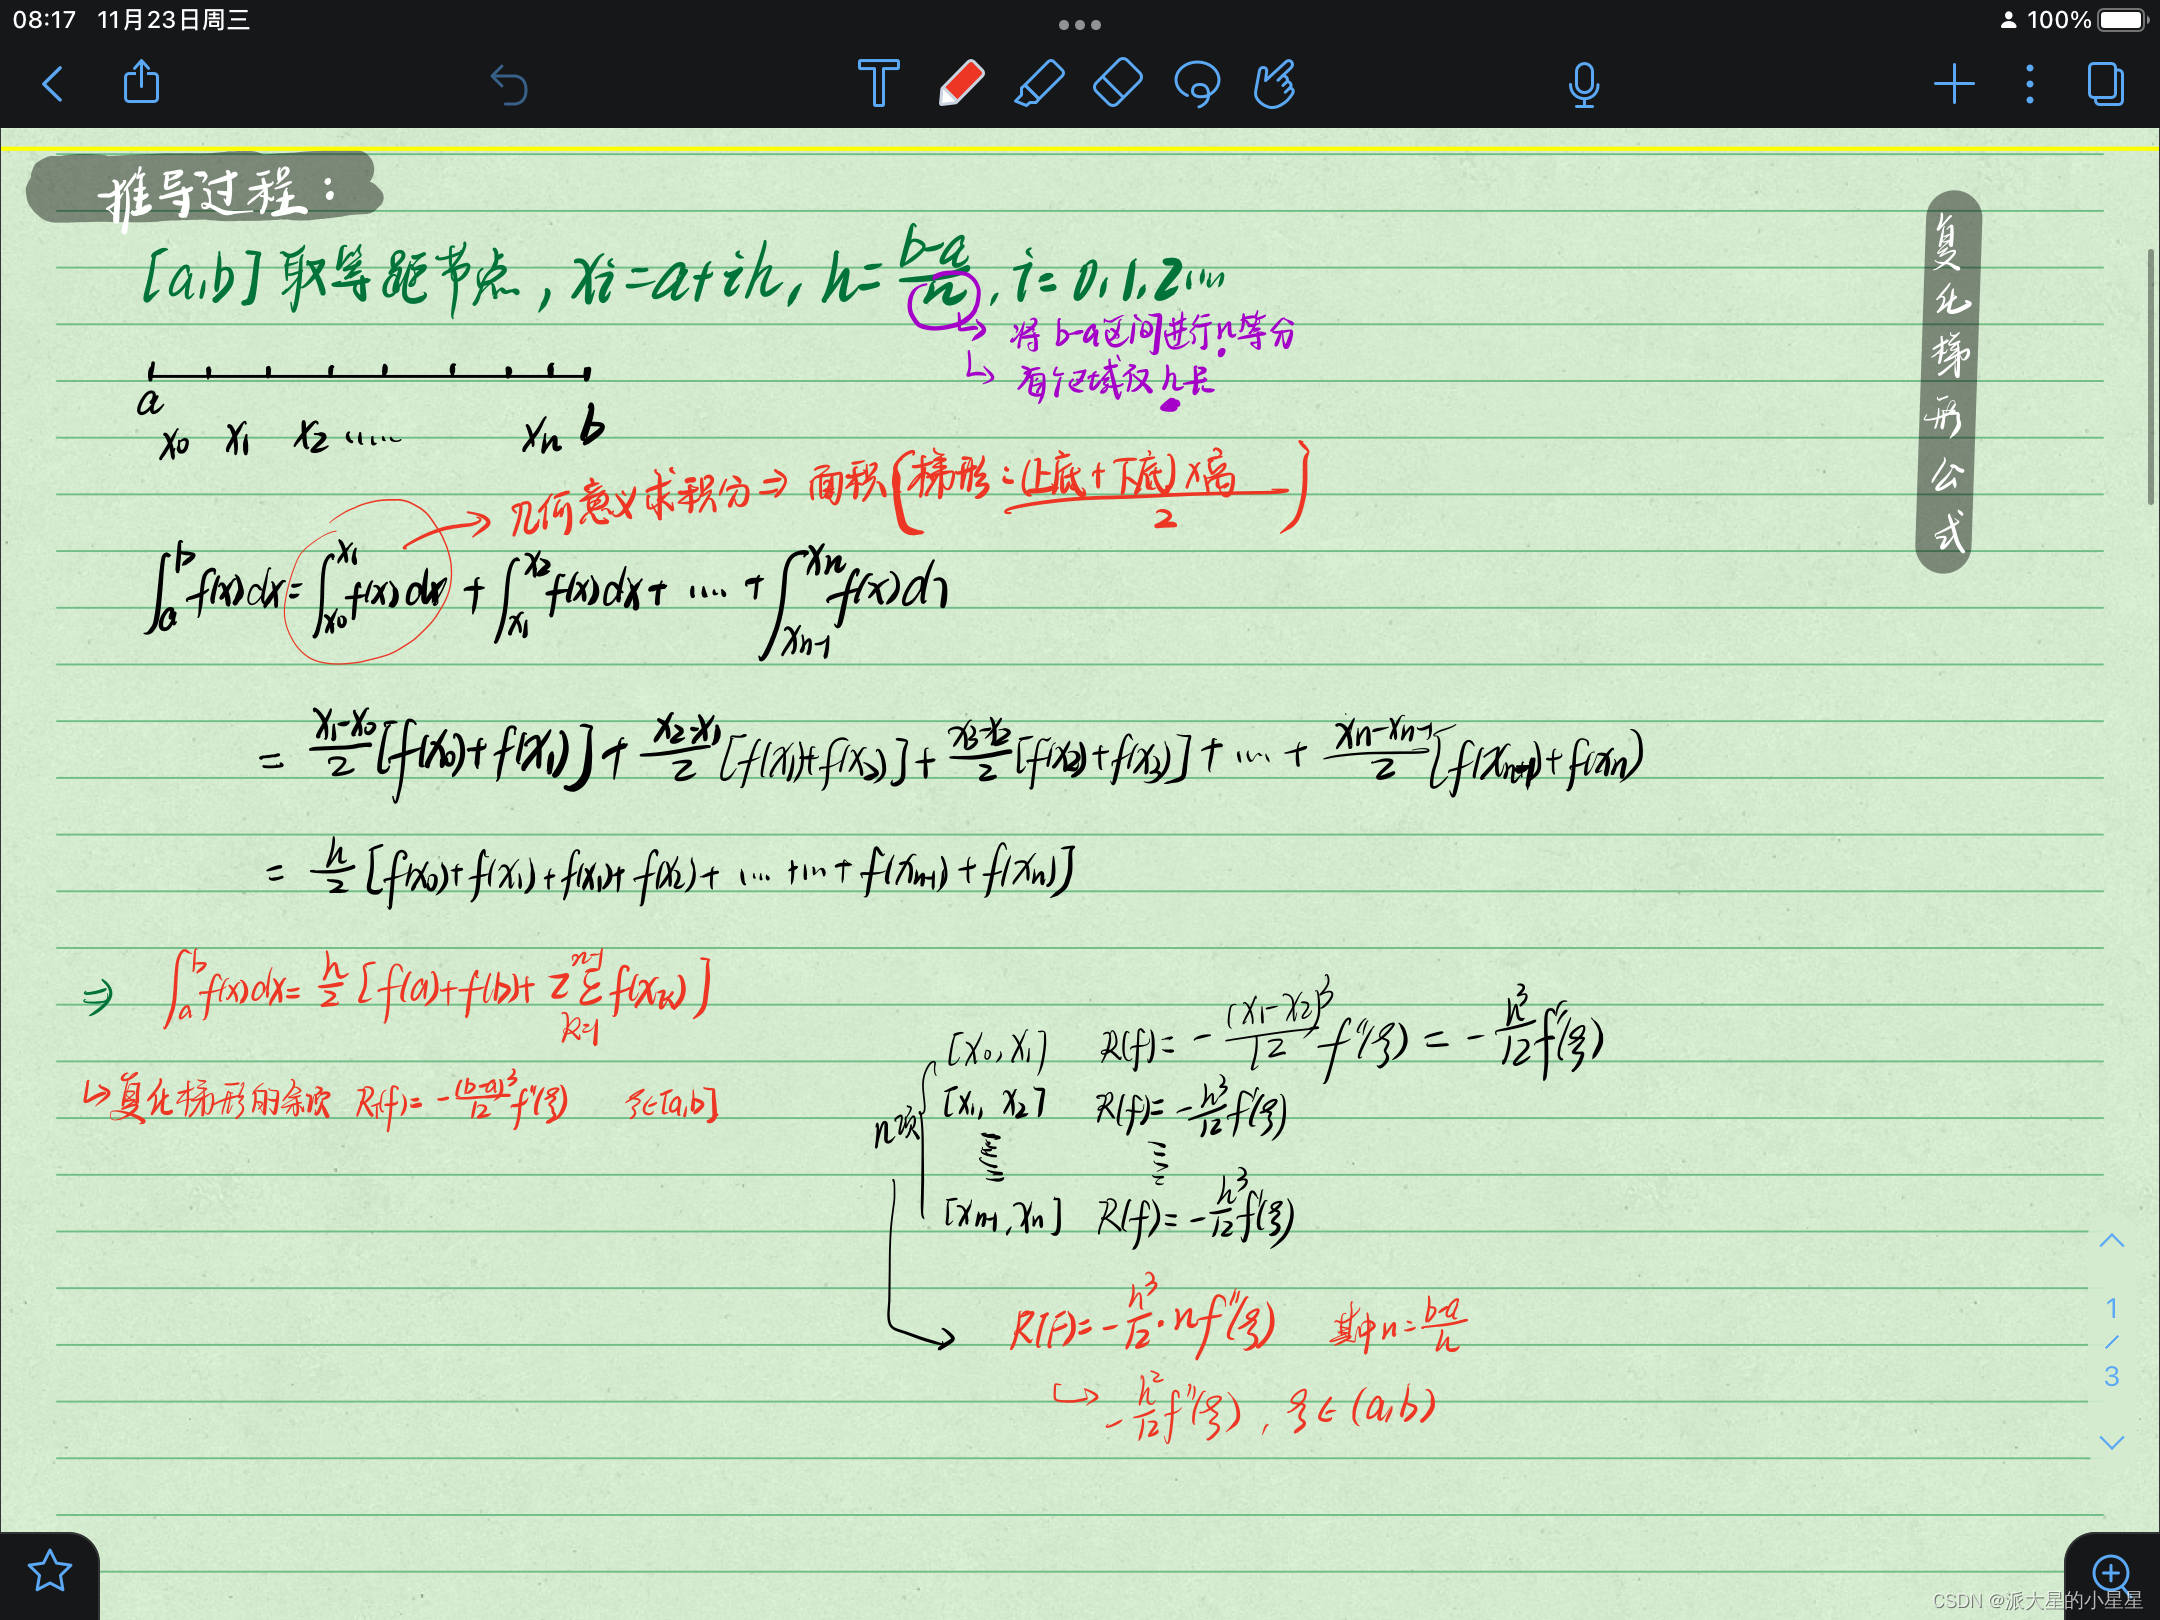 08:17 11月23日周三
100%
推导过程：
复化梯形公式
[a,b]取等距节点，xi=a+ih, h=\frac{b-a}{n}, i=0,1,2...n
将b-a区间进行n等分
每个区域仅h长
a b
x0 x1 x2 ...... xn
几何意义求积分⇒面积(梯形：\frac{(上底+下底)×高}{2})
∫_a^b f(x)dx=∫_{x0}^{x1} f(x)dx+∫_{x1}^{x2} f(x)dx+ .... +∫_{xn-1}^{xn} f(x)dx
= \frac{x1-x0}{2}[f(x0)+f(x1)]+\frac{x2-x1}{2}[f(x1)+f(x2)]+\frac{x3-x2}{2}[f(x2)+f(x3)]+ ... +\frac{xn-xn-1}{2}[f(xn-1)+f(xn)
= \frac{h}{2}[f(x0)+f(x1)+f(x1)+f(x2)+ .... + ... +f(xn-1)+f(xn)]
⇒ ∫_a^b f(x)dx=\frac{h}{2}[f(a)+f(b)+2∑_{k=1}^{n-1} f(xk)]
↳复化梯形的余项 R_T(f)=-\frac{(b-a)^3}{12}f''(ξ) ξ∈[a,b]
n项
[x0,x1] R(f)=-\frac{(x1-x2)^3}{12}f''(ξ)=-\frac{h^3}{12}f''(ξ)
[x1,x2] R(f)=-\frac{h^3}{12}f''(ξ)
[xn-1,xn] R(f)=-\frac{h^3}{12}f''(ξ)
R(F)=-\frac{h^3}{12}·nf''(ξ) 其中n=\frac{b-a}{h}
↳ -\frac{h^2}{12}f''(ξ), ξ∈(a,b)
1
/
3
CSDN @派大星的小星星